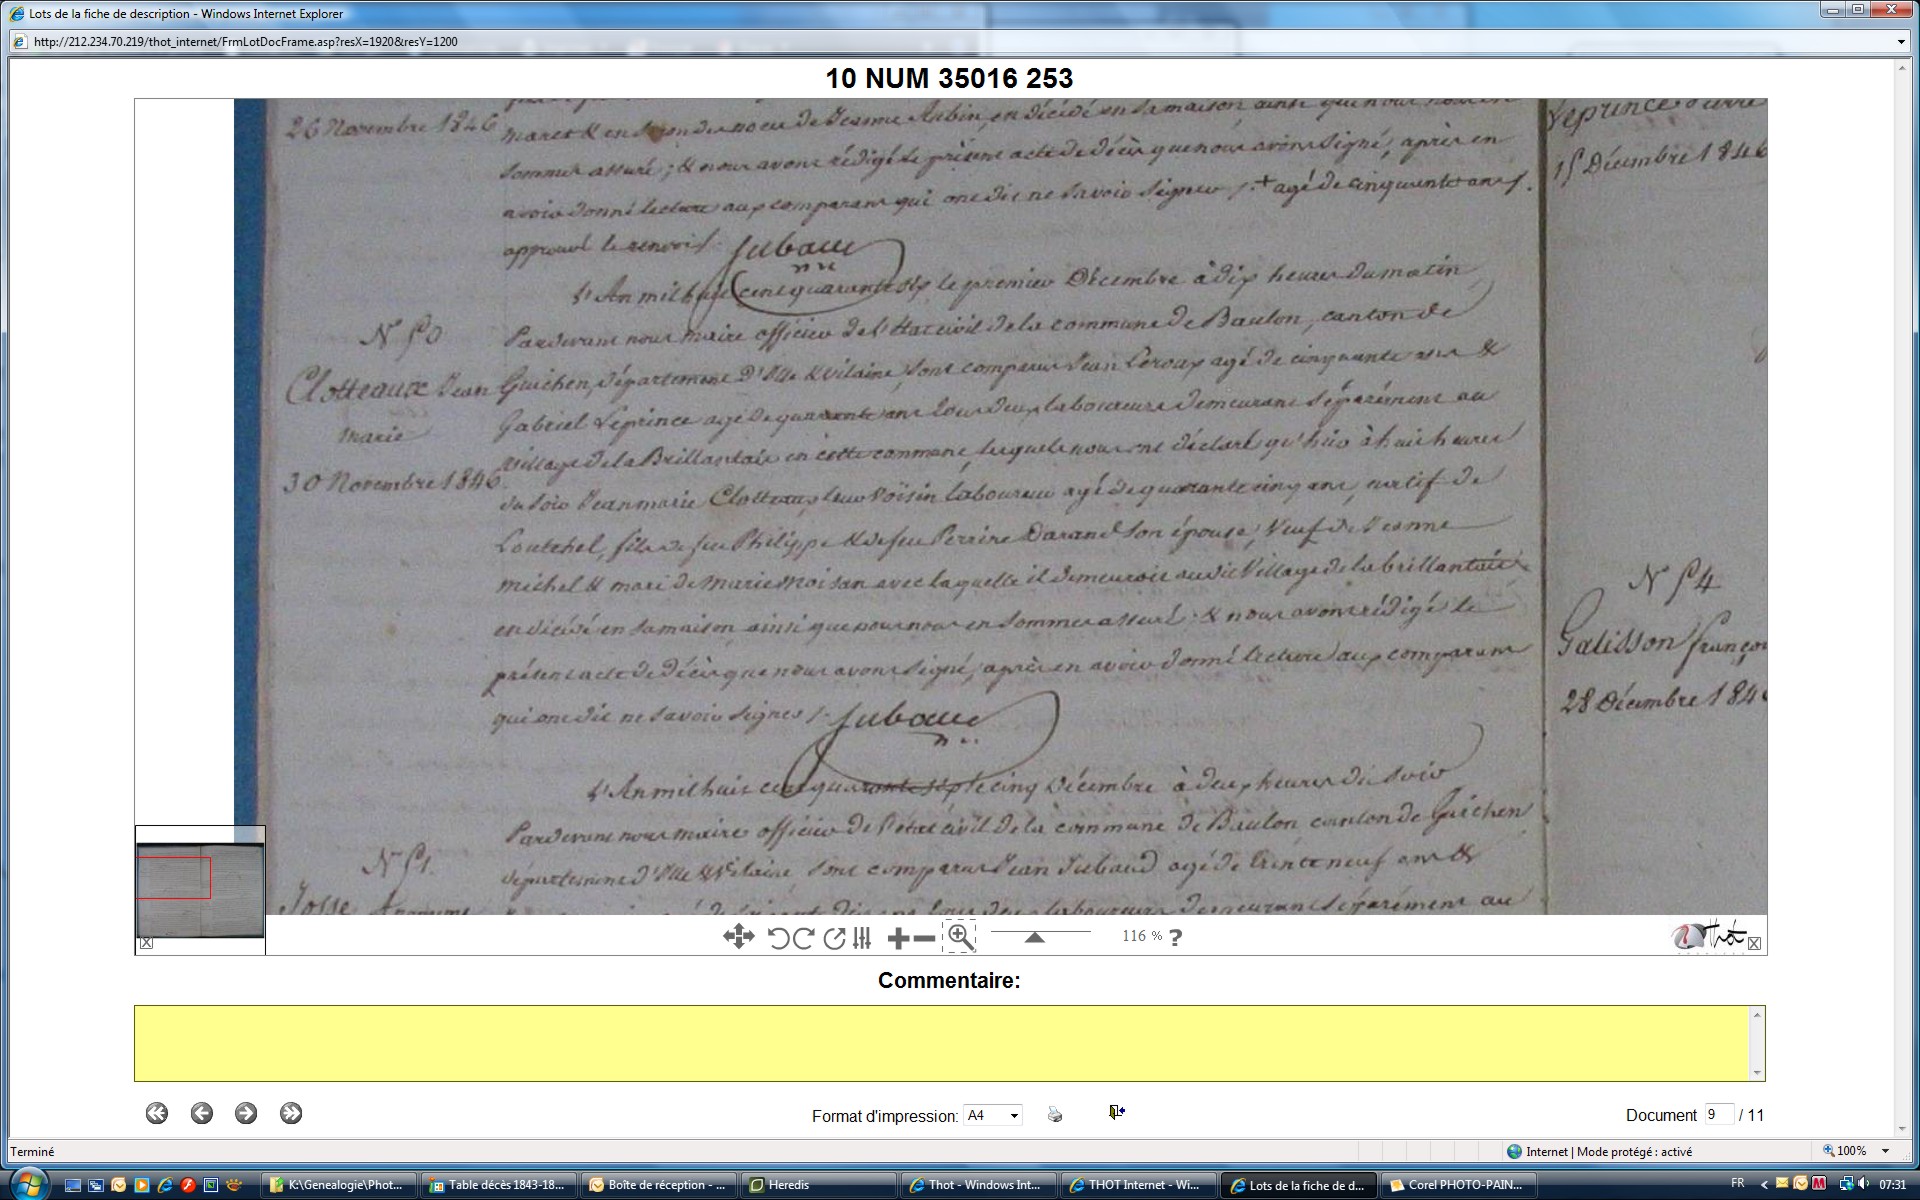 Lots de la fiche de description - Windows Internet Explorer
http://212.234.70.219/thot_internet/FrmLotDocFrame.asp?resX=1920&resY=1200
10 NUM 35016 253
26 Novembre 1846
maret & en de Jeanne Aubin, en décédé en sa maison ainsi que nous nous en
sommes assuré; & nous avons rédigé le présent acte de décès que nous avons signé, après en
avoir donné lecture aux comparans qui ont dit ne savoir signer /. + agé de cinquante ans /.
approuvé le renvoi /. Jubault
L'An mil huit cent quarante six le premier Décembre à dix heures du matin,
N° 50
Pardevant nous maire officier de l'état civil de la commune de Baulon, canton de
Clotteaux Jean
Guichen, département d'Ille & Vilaine, sont comparus Jean Leroux agé de cinquante ans &
marie
Gabriel Leprince agé de quarante ans tous deux laboureurs demeurans séparément au
30 Novembre 1846.
village de la Brillantais en cette commune, lesquels nous ont déclaré qu'hier à huit heures
du soir Jean marie Clotteaux leur voisin laboureur agé de quarante cinq ans, natif de
Loutehel, fils de feu Philippe & de feu Perrine Durand son épouse, Veuf de Jeanne
michel & mari de Marie Moisan avec laquelle il demeuroit au dit Village de la brillantais
en décédé en sa maison ainsi que nous nous en sommes assuré; & nous avons rédigé le
présent acte de décès que nous avons signé, après en avoir donné lecture aux comparans
qui ont dit ne savoir signer /. Jubault
L'An mil huit cent quarante six le cinq Décembre à deux heures du soir
Pardevant nous maire officier de l'état civil de la commune de Baulon canton de Guichen
N° 51.
département d'Ille & Vilaine, sont comparus Jean Jubaud agé de trente neuf ans &
Josse Anonyme
ans tous deux laboureurs demeurans séparément au
Leprince Pierre
15 Décembre 1846
N° 54
Galisson françois
28 Décembre 1846
116 % ?
Thot
Commentaire:
Format d'impression: A4
Document 9 / 11
Terminé
Internet | Mode protégé : activé
100%
K:\Genealogie\Phot...
Table décès 1843-18...
Boîte de réception - ...
Heredis
Thot - Windows Int...
THOT Internet - Wi...
Lots de la fiche de d...
Corel PHOTO-PAIN...
FR
07:31